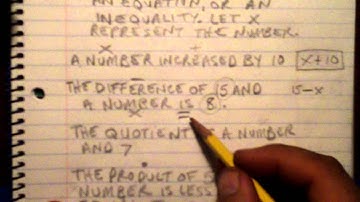 AN EQUATION, OR AN
INEQUALITY. LET X
REPRESENT THE NUMBER.
X +
A NUMBER INCREASED BY 10 X+10
THE DIFFERENCE OF 15 AND 15-X
A NUMBER IS 8.
X =
THE QUOTIENT A NUMBER
AND 7
THE PRODUCT OF 5
NUMBER IS LESS